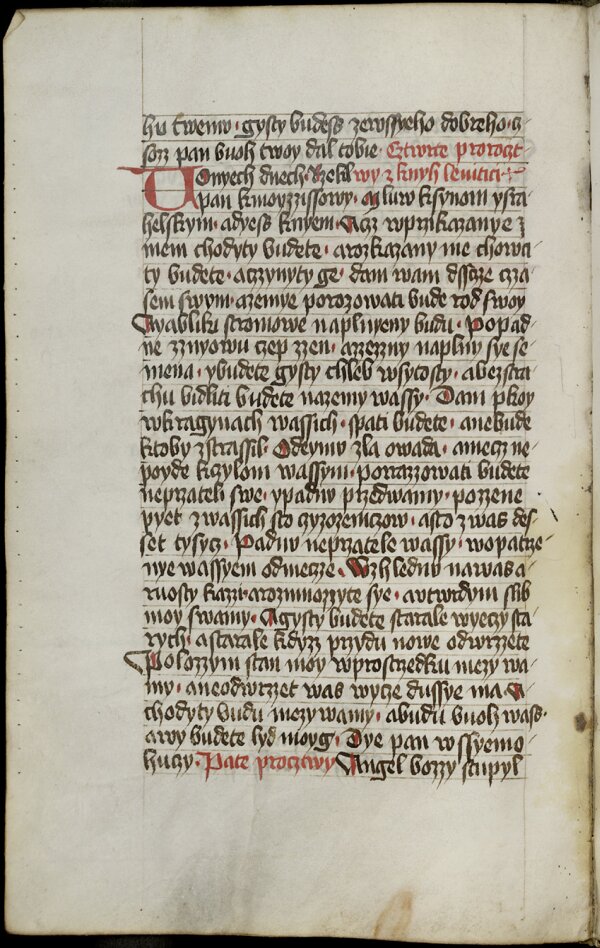 hu twemu · gysty budess zewssyeho dobreho · g
sozz pan buoh twoy dal tobie · Cztwrte prorocz
Wonyech dnech · Rzekl wy z knyh levitici
pan k moyzzissowy · mluw k synom ysra
helskym · a dyess knyem · Acz w przikazanye z
mem chodyty budete · a rozkazany me chowa
ty budete · a czynyty ge · dam wam dsscze cza
sem swym · a zemye porozowati bude rod swoy
A yabliku stromowe naplnyeny budu · Popad
ne zznyowu czep zzen · a zzezzny naplny sye se
mena · y budete gysty chleb w sytosty · a bez stra
chu bidliti budete na zemy wassy · Dam pkoy
w kragynach wassich · spati budete · a nebude
ktoby zstrassil · Odeymu zla owada · a mecz ne
poyde k czylom wassym · porazzowati budete
neprzateli swe · y padnu przed wamy · pozzene
pyet z wassich sto czyzozemczow · a sto z was des
set tysycz · Padnu neprzatele wassy · w opatrze
nye wassyem od mecze · Wzhlednu na was a
ruosty kazu · a rozmnozzyte sye · a utwrdym slib
moy s wamy · A gysty budete starale wyeczy sta
rych · a starale kdyzz przydu nowe odwrzete
Polozzym stan moy w prostrzedku mezy wa
my · a neodwrzet was wycze dussye ma · A
chodyty budu mezy wamy · a budu buoh wass ·
a wy budete lyd moyg · Dye pan wssyemo
huczy · Pate proctwy Angel bozzy stupyl